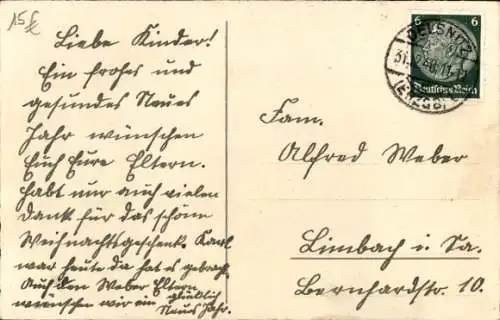 15 £
Liebe Kinder!
Ein frohes und
gesundes Neues
Jahr wünschen
Euch Eure Eltern.
Habt nur auch vielen
Dank für das schöne
Weihnachtsgeschenk. Karl
war heute da hat es gebracht.
Auch den Weber Eltern
wünschen wir ein glücklich
Neues Jahr.
6 6
OELSNITZ
(ERZGEB)
Deutsches Reich
Fam.
Alfred Weber
Limbach i. Sa.
Bernhardstr. 10.